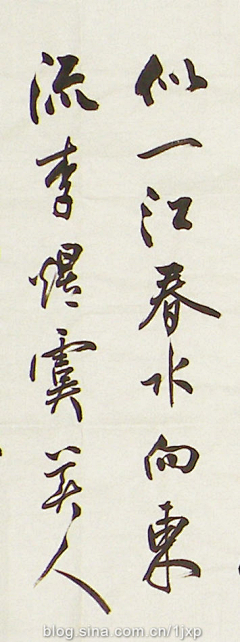 似一江春水向東
流李煜虞美人
blog.sina.com.cn/1jxp